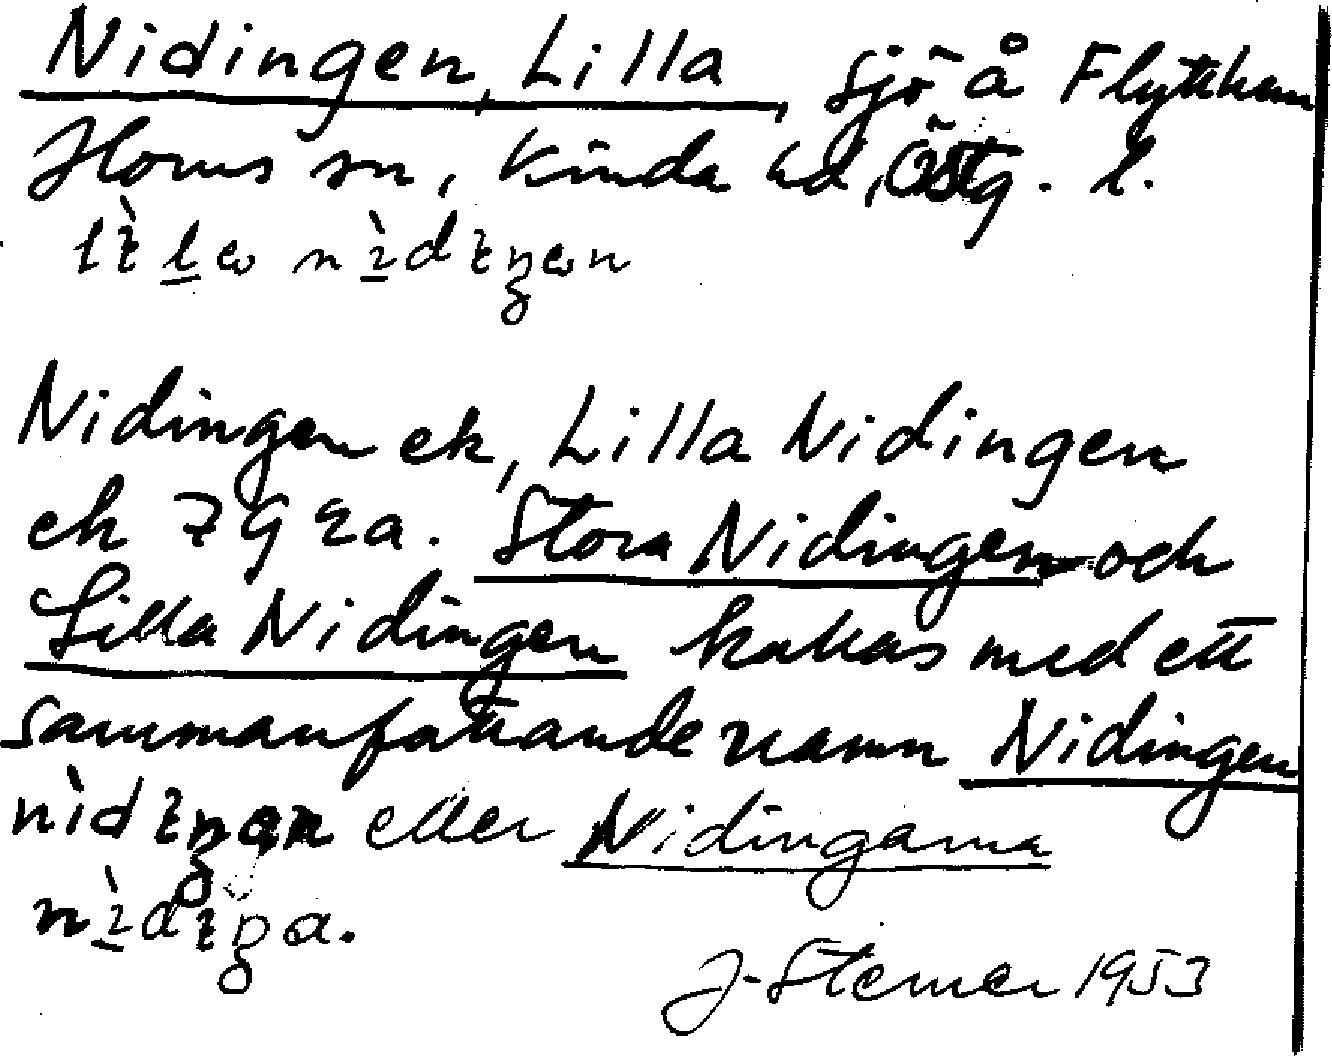 Nidingen, Lilla, sjö å Flytthem
Horns sn, Kinda hd, Östg. l.
Nidingen ek, Lilla Nidingen
ek 7 g 2 a. Stora Nidingen och
Lilla Nidingen kallas med ett
sammanfattande namn Nidingen
eller Nidingarna
J. Sterner 1953